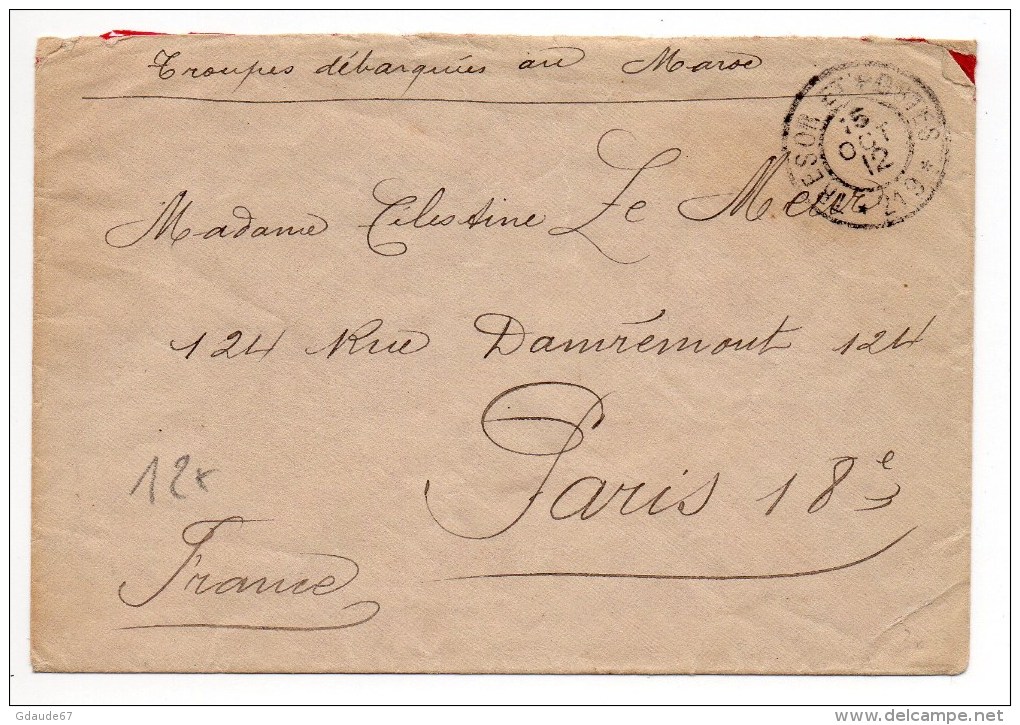 Troupes débarquées au Maroc
Madame Célestine Le Meur
124 Rue Damrémont 124
Paris 18e
12x
France
TRESOR ET POSTES
* 219 *
Gdaude67
www.delcampe.net